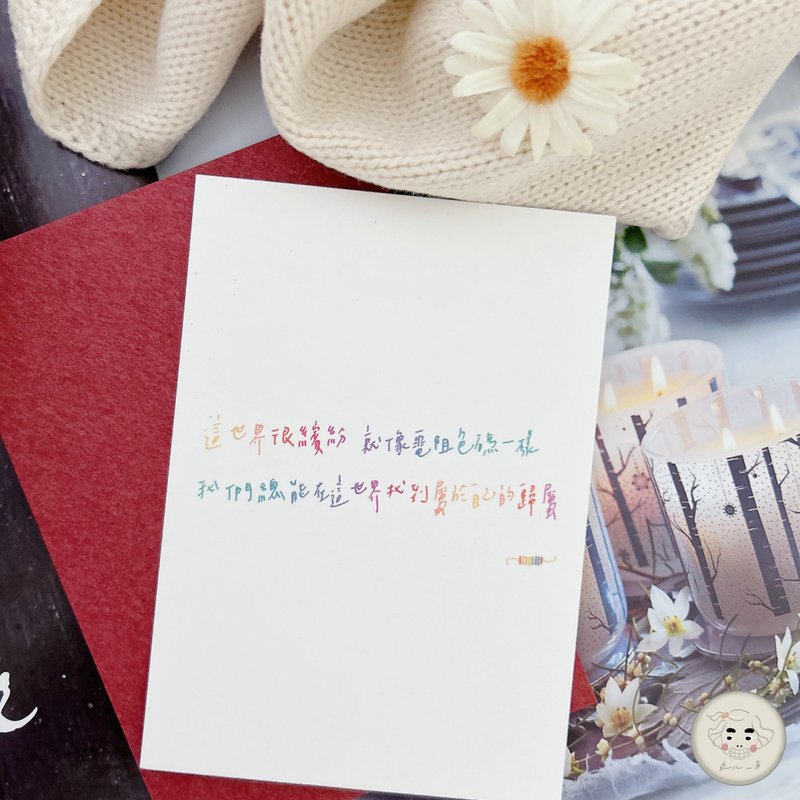 這世界很繽紛 就像電阻色碼一樣
我們總能在這世界找到屬於自己的歸屬